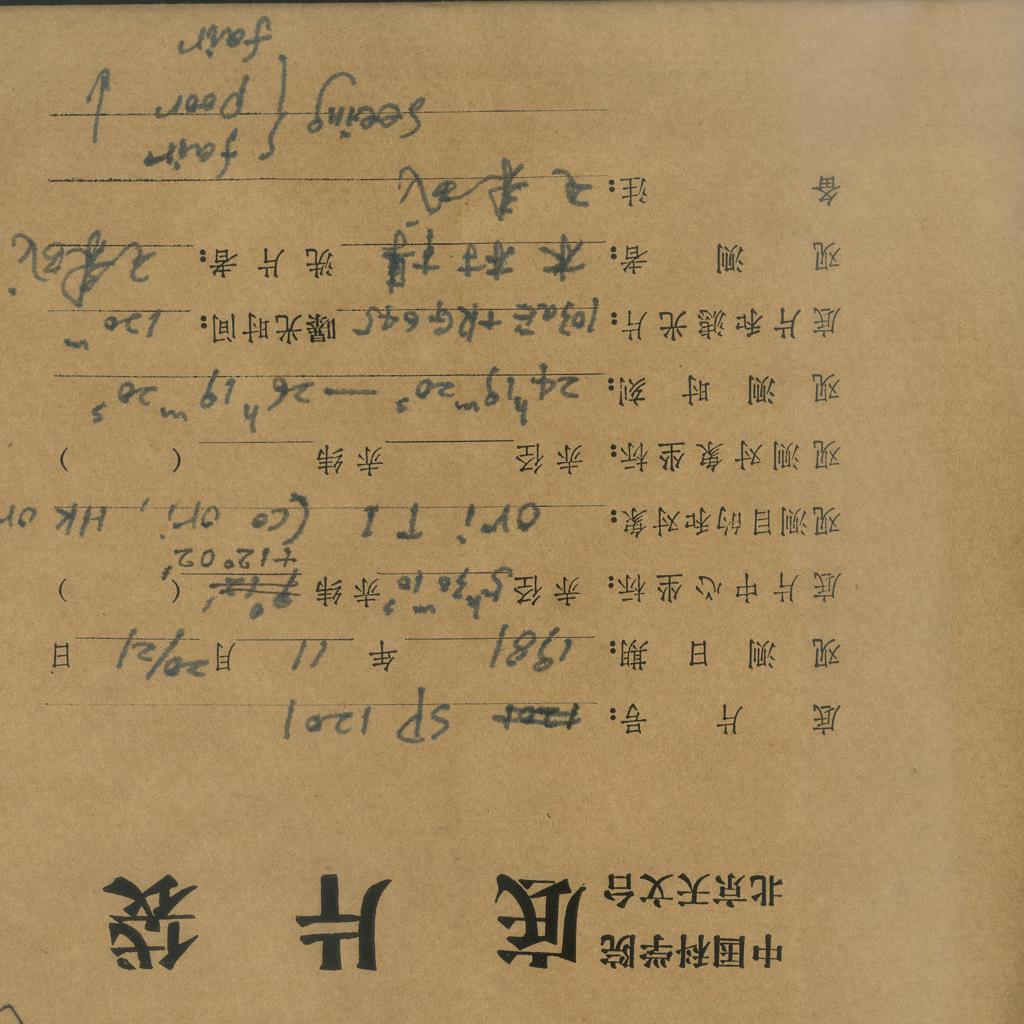 中国科学院
北京天文台
底片袋
底片号: SP1201
观测日期: 1981年11月20/21日
底片中心坐标: 赤径5h30m10s赤纬+12°02′( )
观测目的和对象: Ori T 1 (Co Ori, HK Or
观测对象坐标: 赤径 赤纬 ( )
观测时刻: 24h19m20s — 26h19m20s
底片和滤光片: 103aE+RG645 曝光时间: 120m
观测者: 洗片者:
备注:
fair
Seeing { poor ↓
fair